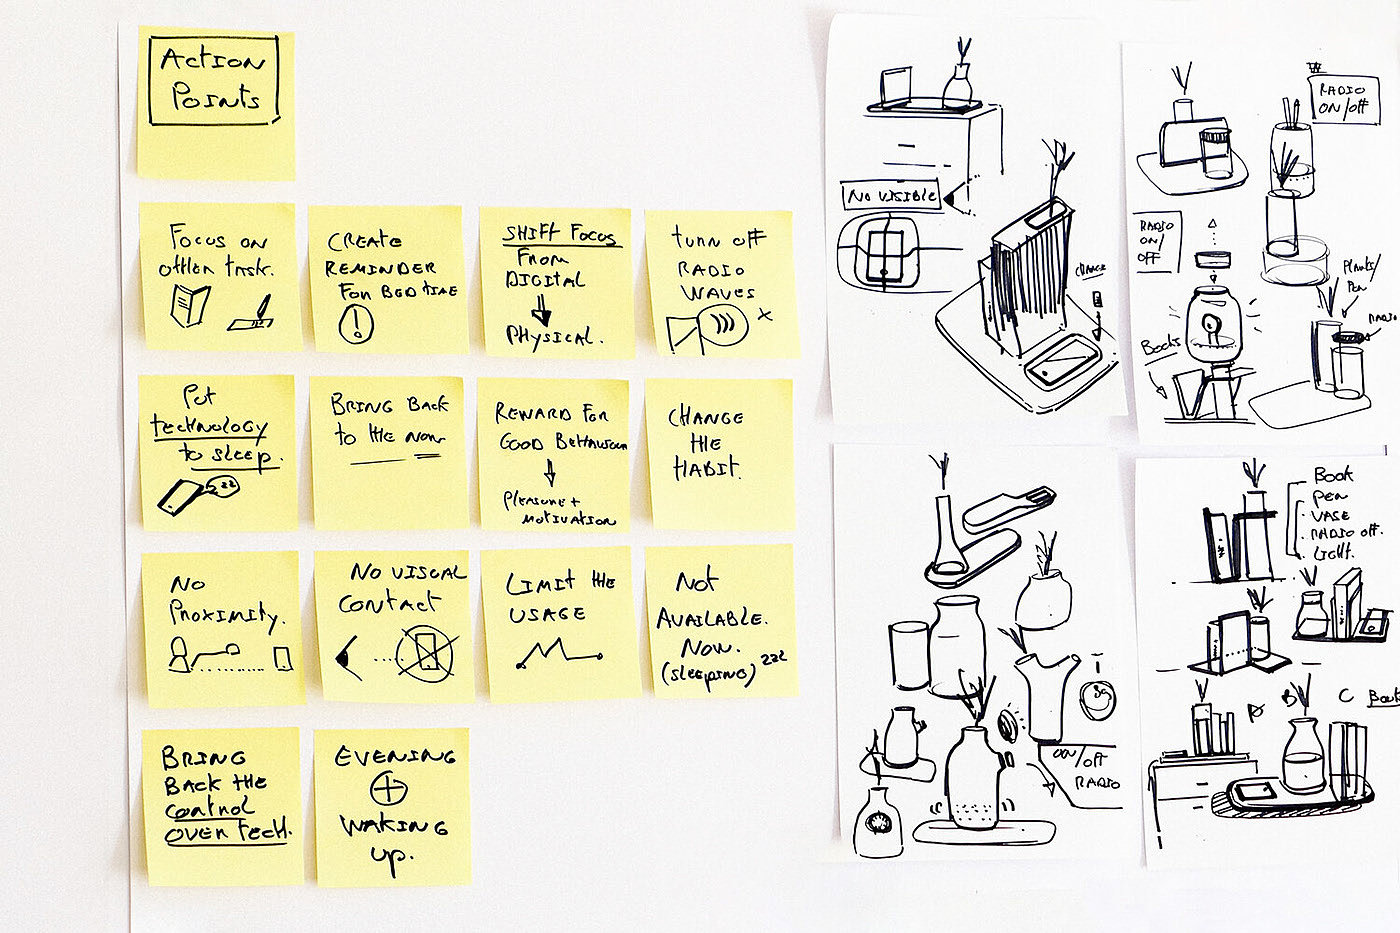 Action
Points
Focus on
other task.
Create
Reminder
for bedtime
!
Shift Focus
From
Digital
Physical.
turn off
Radio
Waves
x
Put
technology
to sleep.
zz
Bring back
to the now
Reward for
Good Behaviour
Pleasure +
motivation
Change
the
Habit.
No
Proximity.
No visual
contact
Limit the
usage
Not
Available.
Now.
(sleeping) zzz
Bring
back the
control
over tech.
Evening
+
Waking
up.
No visible
charge
Radio
on/off
Radio
on/
off
Plants/
Pen
Radio
Books
on/off
Radio
Book
Pen
Vase
Radio off.
Light.
B
C